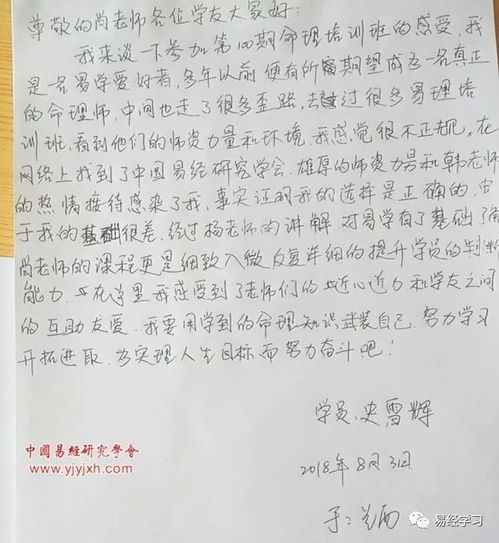 尊敬的尚老师各位学友大家好:
我来谈一下参加第100期命理培训班的感受,我
是一名易学爱好者,多年以前便有所期望成为一名真正
的命理师,中间也走了很多歪路,去过很多易理培
训班,看到他们的师资力量和环境,我感觉很不正规,在
网络上找到了中国易经研究学会,雄厚的师资力量和韩老师
的热情接待感染了我,事实证明我的选择是正确的,由
于我的基础很差,经过杨老师的讲解对易学有了基础了解
尚老师的课程更是细致入微反复详细的提升学员的判断
能力,在这里我感受到了老师们的尽心尽力和学友之间
的互助友爱,我要用学到的命理知识武装自己,努力学习
开拓进取,为实理人生目标而努力奋斗吧!
学员:史雪辉
2018年8月31日
于:兰
中國易經研究學會
www.yjyjxh.com
易经学习